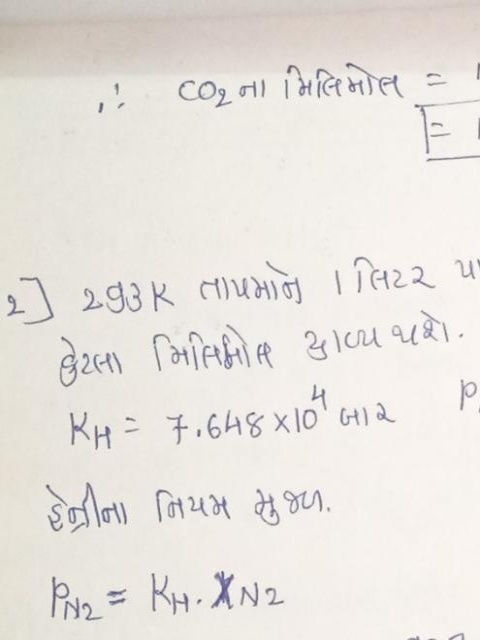 ∴ CO₂ના મિલિમોલ =
=
2] 293K તાપમાને 1 લિટર
કેટલા મિલિમોલ દ્રાવ્ય થશે.
K_H = 7.648×10⁴ બાર P
હેન્રીના નિયમ મુજબ.
P_N2 = K_H. X N2